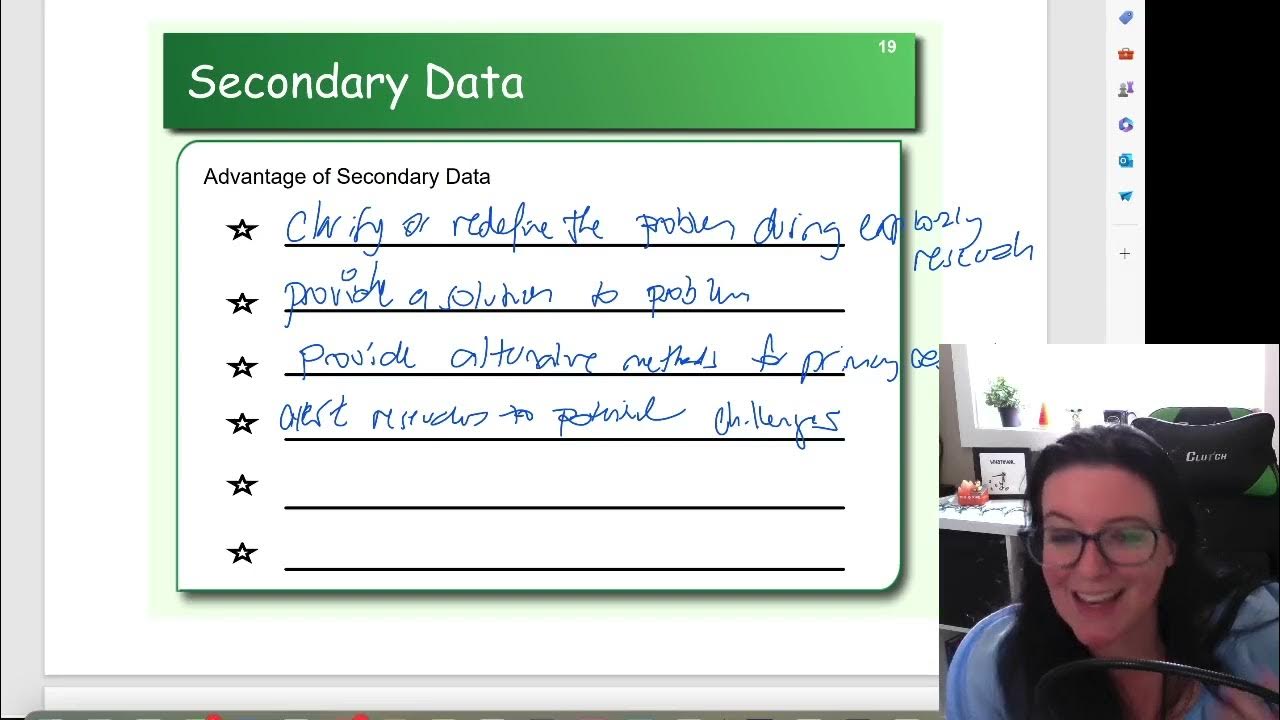 19
Secondary Data
Advantage of Secondary Data
Clarify or redefine the problem during
research
provide a solution to problem
Provide alternative methods for primary
alert to potential challenges
CLUTCH
WHATEVER.